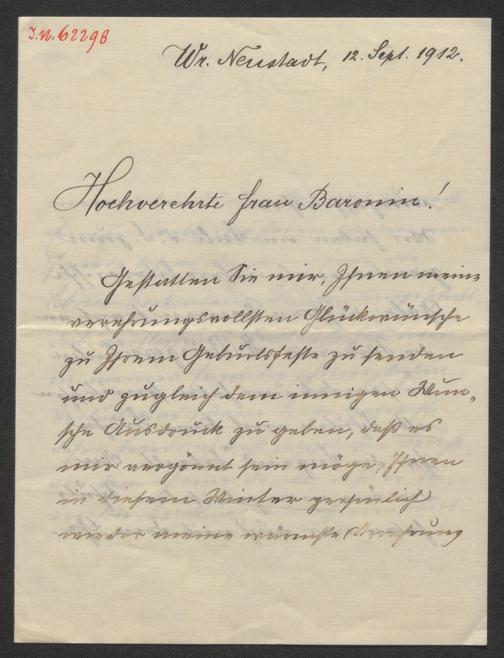 I.N. 62298
Wr. Neustadt, 12. Sept. 1912.
Hochverehrte Frau Baronin!
Gestatten Sie mir, Ihnen meine
verehrungsvollsten Glückwünsche
zu Ihrem Geburtsfeste zu senden
und zugleich dem innigen Wun„
sche Ausdruck zu geben, daß es
mir vergönnt sein möge, Ihnen
in diesem Winter persönlich
wieder meine wärmste Verehrung